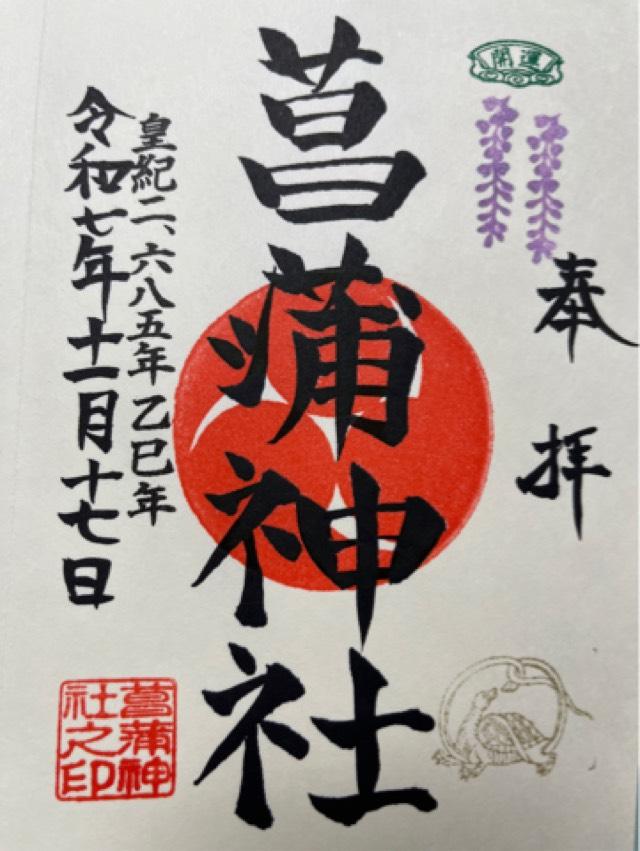 開運
奉拝
菖蒲神社
皇紀二、六八五年乙巳年
令和七年十一月十七日
菖蒲神
社之印